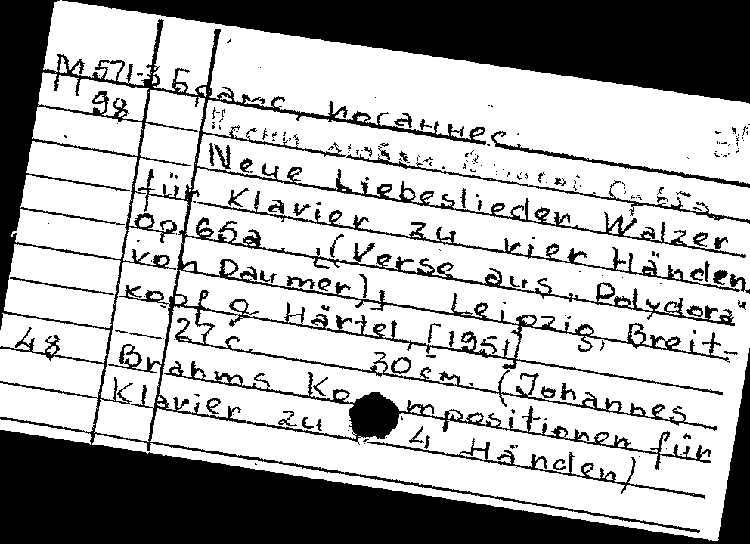 М 571-3 Брамс, Иоганнес.
98 Песни любви. Op. 65a.
Neue Liebeslieder. Walzer
für Klavier zu vier Händen.
Op. 65a. [(Verse aus „Polydora“
von Daumer)], Leipzig, Breit-
kopf & Härtel, [1951]
27 с. 30 см. (Johannes
48 Brahms Kompositionen für
Klavier zu 4 Händen)